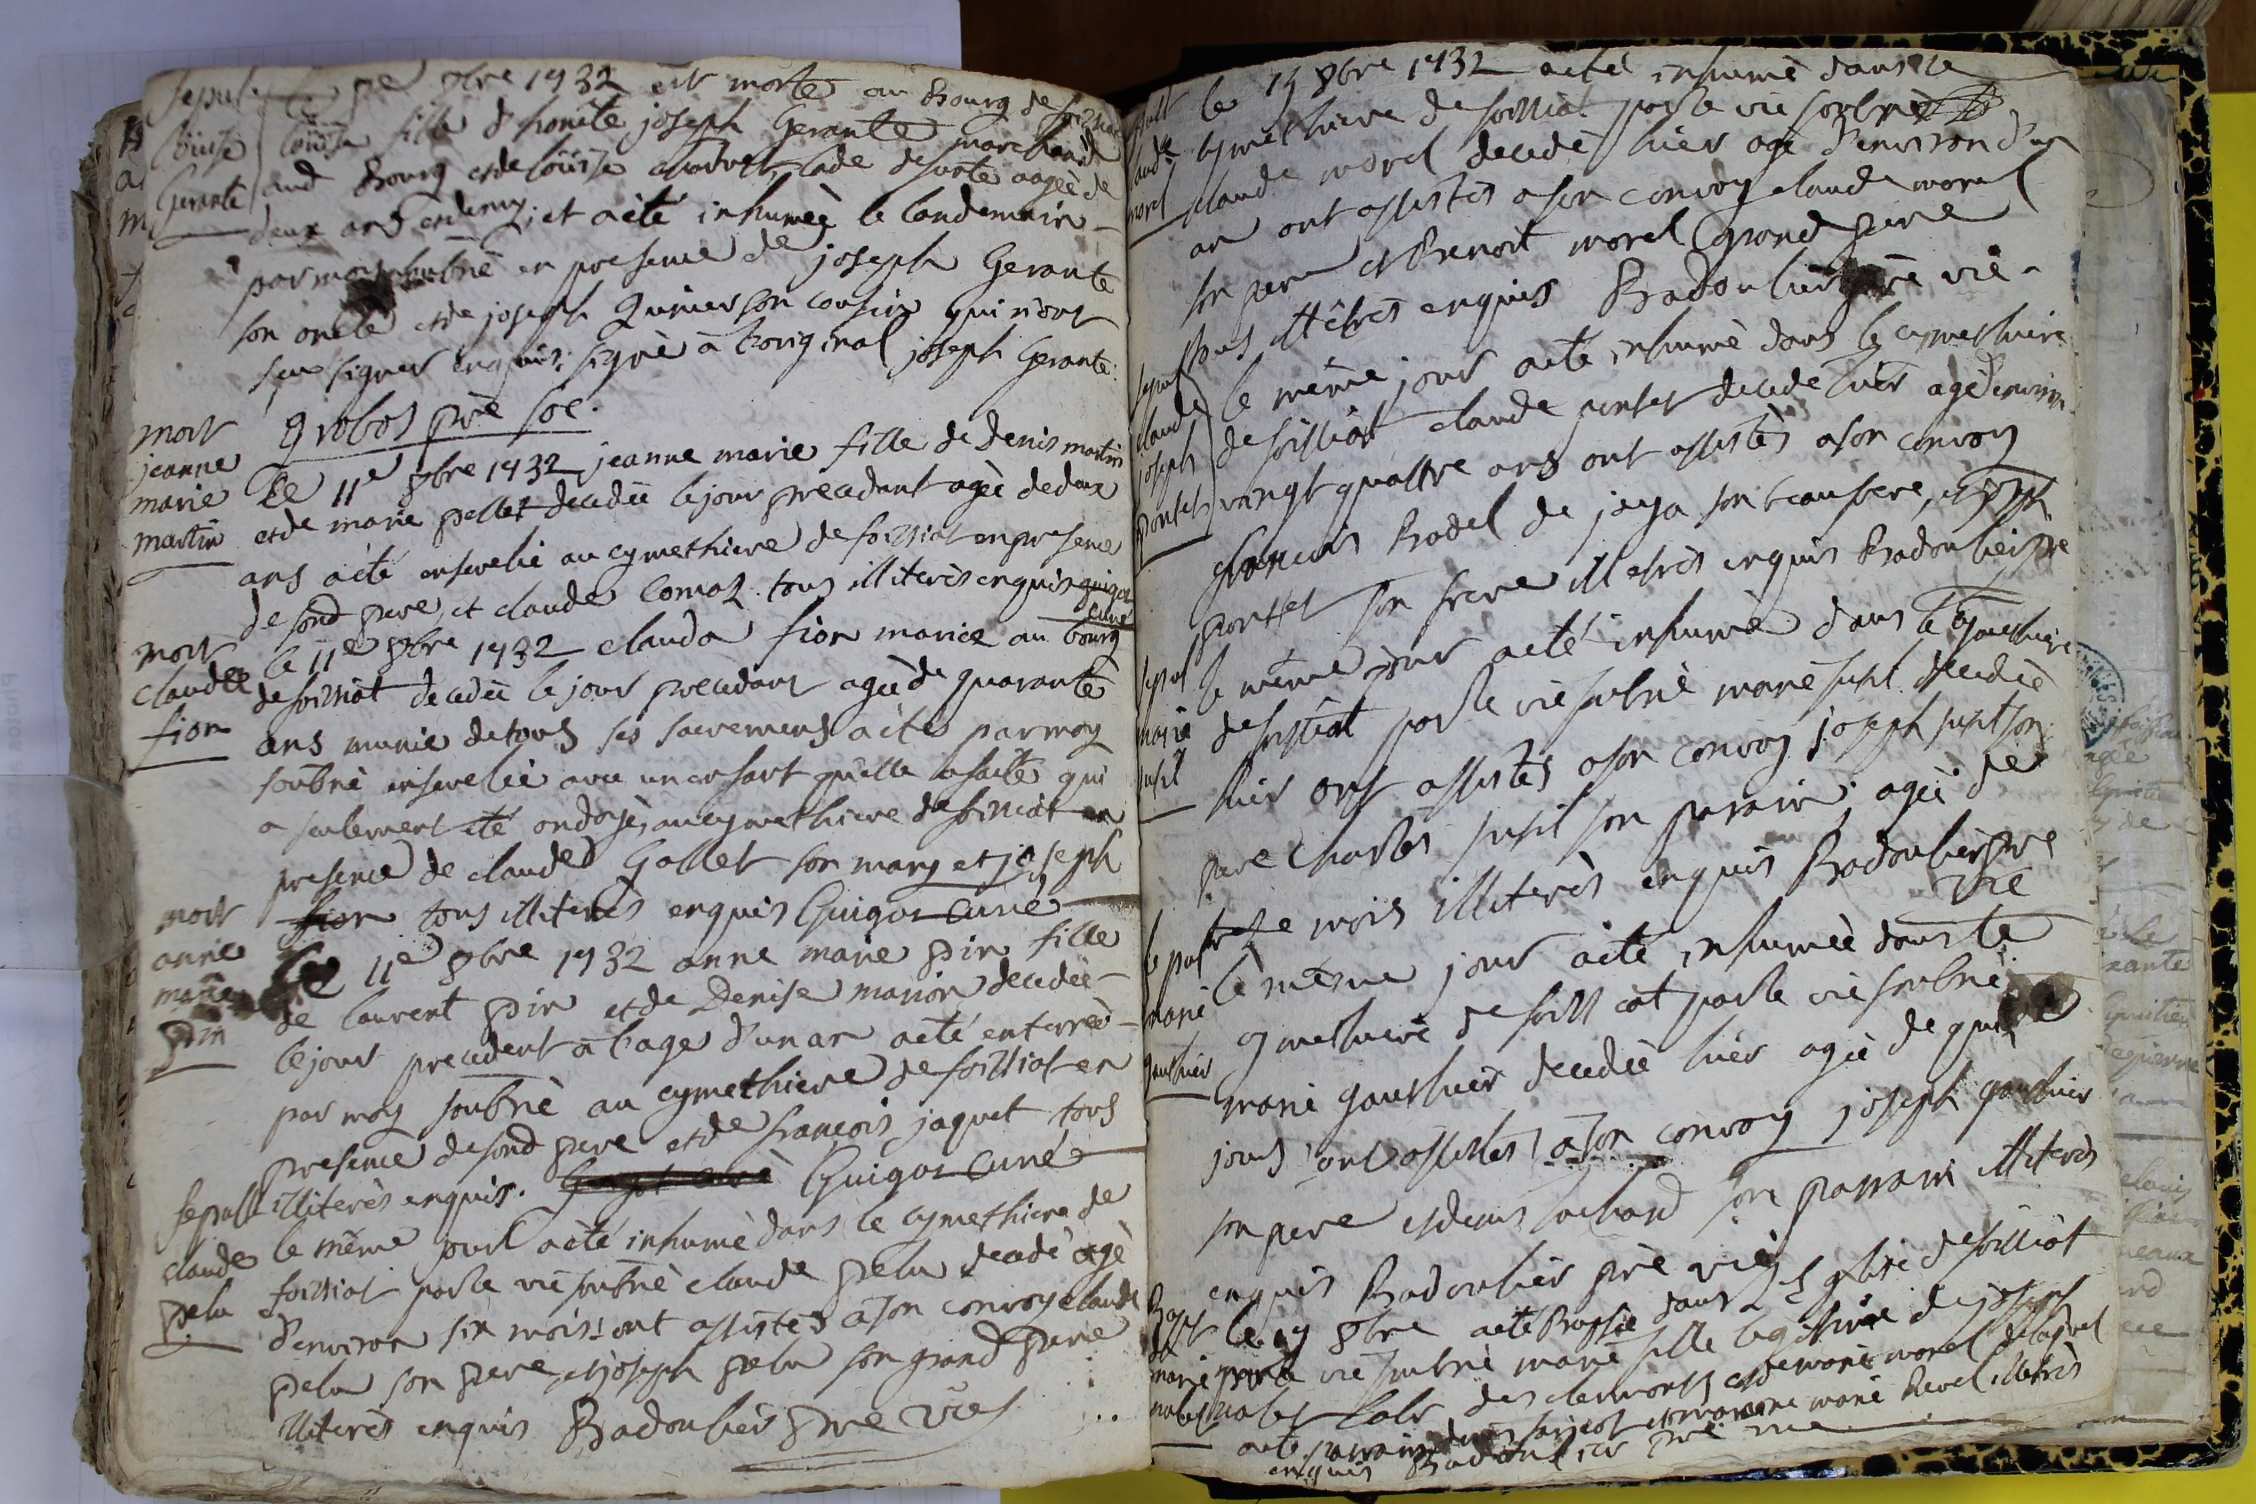 sepult le 9e 8bre 1732 est morte au Bourg de foissiat
louise louise fille d'honéte joseph Gerante marchand
Gerante aud Bourg et de louise aagéé de
deux ans et demy; et a été inhumeé le landemain
par moy soubnè en presence de joseph Gerante
son oncle et de joseph son cousin qui n'ont
sçeu signer enquis: signè a l'original joseph Gerante
probos prè soc.
mort
jeanne
marie
martin
Le 11e 8bre 1732 jeanne marie fille de Denis martin
et de marie pellet decedeé le jour precedant ageé de deux
ans a été ensevelie au cymethiere de foissiat en presence
de sond pere, et claude Comas tous illiterès enquis guigot
curé
mort
clauda
fion
le 11e 8bre 1732 clauda fion marieé au bourg
de foissiat decedeé le jour precedant ageé de quarante
ans munie de tous ses sacremens a étés par moy
soubnè ensevelie avec un enfant qu'elle a faite qui
a seulement été ondoyé, au cymethiere de foissiat en
presence de claude Gallet son mary et joseph
fion tous illiterès enquis Guigot Curé
mort
anne
marie
pin
Le 11e 8bre 1732 anne marie pin fille
de laurent pin et de Denise marion decedeé
le jour precedent a l'age d'un an a été enterreé
par moy soubnè au cymethiere de foissiat en
presence de sond pere et de françois jaquet tous
illiterès enquis. Guigot Curé
sepult
claude
pelu
le même jour a été inhumè dans le cymethiere de
foissiat par le vie soubnè claude pelu decedè agè
d'environ six mois: ont assistes a son convoy claude
pelu son pere, et joseph pelu son grand pere
illiterès enquis Badoulier pre vie
sepult
claude
morel
le 13 8bre 1732 a été inhumè dans le
cymethiere de foissiat par le vie soubnè
claude morel decedè hier agè d'environ d'un
an ont assistes a son convoy claude morel
son pere et Benoit morel grand pere
tous illetrés enquis Badoulier prè vie
sepul
claude
joseph
ponset
le même jour a été inhumè dans le cymethiere
de foissiat claude ponset decede hier agè d'environ
vingt quattre ans ont assistès a son convoy
francois Rodel de jaya son beaufrere, et joseph
ponset son frere illetrès enquis Badoulier pre
sepul
marie
pusit
le même jour a été inhumè dans le cymethiere
de foissiat par le vie soubnè marie pusit decedeè
hier ont assistés a son convoy joseph pusit son
pere charles pusit son parain; ageé de
treze mois illiterès enquis Badoulier pre
vie
sepul
marie
gauthier
le même jour a été inhumeè dans le
cymethiere de foissiat par le vie soubnè
marie gauthier decedeè hier ageé de quinze
jours ont assistes a son convoy joseph gauthier
son pere et denis son parrain illiterès
enquis Badoulier prè vie
Bapt
de
marie
le 17 8bre a été Baptisée dans l'eglise de foissiat
par le vie soubnè marie fille legitime de joseph
des clermonts et de marie morel delaquel
a été parrain denis et maraine marie Revel illetrès
enquis Badoulier prè vie